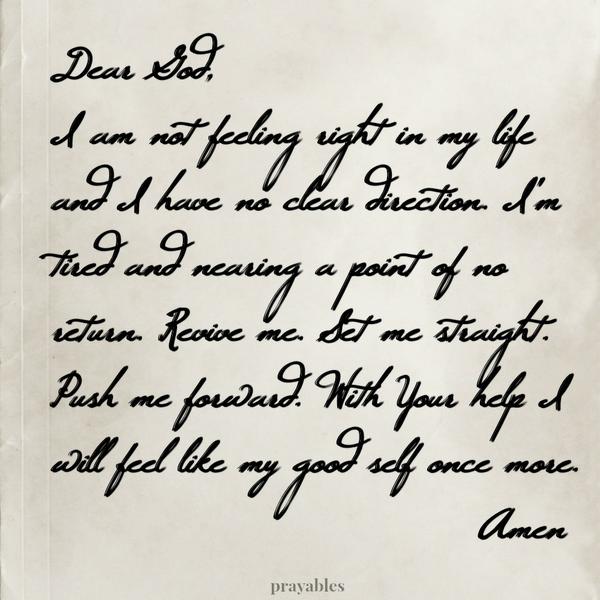 Dear God,
I am not feeling right in my life
and I have no clear direction. I'm
tired and nearing a point of no
return. Revive me. Set me straight.
Push me forward. With Your help I
will feel like my good self once more.
Amen
prayables